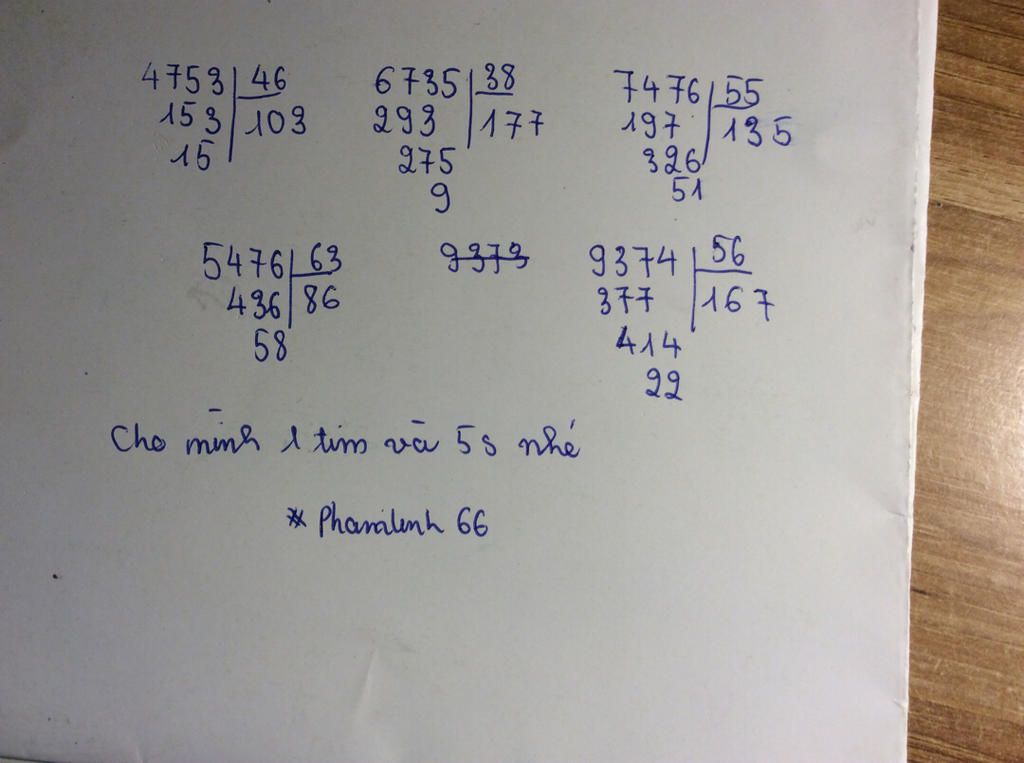 4753 46 6735 38 7476 55
153 103 293 177 197 135
15 275 326
9 51
5476 63 9373 9374 56
436 86 377 167
58 414
22
Cho mình 1 tim và 5s nhé
* Phamlinh 66